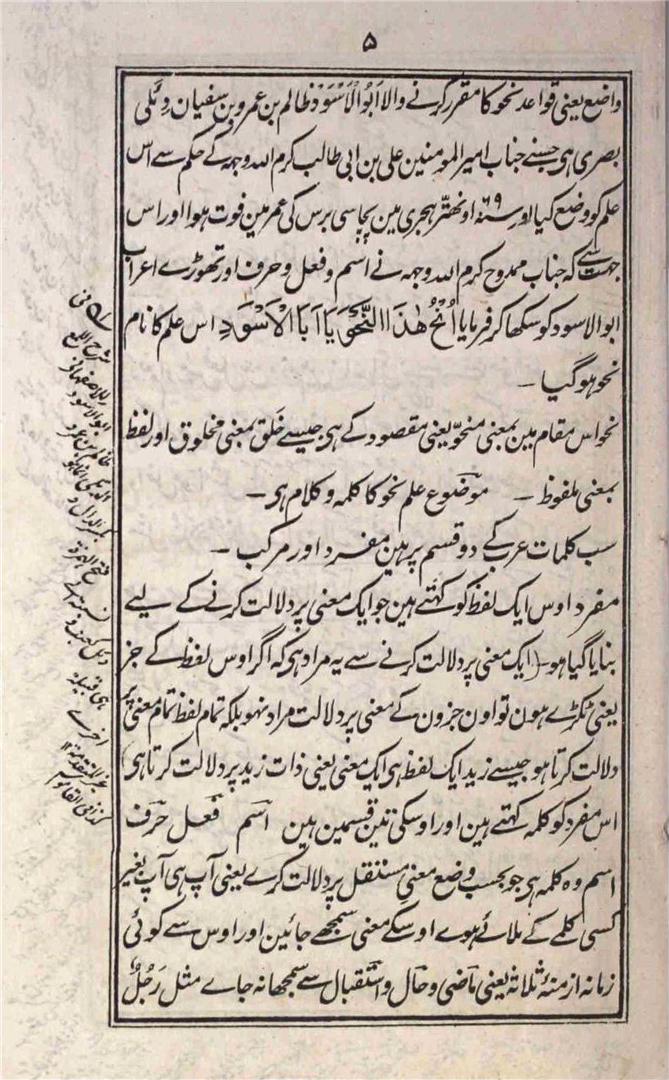 ۵
واضع یعنی قواعد نحو کا مقرر کرنے والا اَبُو الْاَسْوَد ظالم بن عمرو بن سفیان دِئَلی
بصری ہی جسنے جناب امیر المومنین علی بن ابی طالب کرم اللہ وجہہ کے حکم سے اس
علم کو وضع کیا اور سنہ ۶۹ اونھتر ہجری مین پچاسی برس کی عمر مین فوت ہوا اور اس
جہت سے کہ جناب ممدوح کرم اللہ وجہہ نے اسم و فعل و حرف اور تھوڑے اعراب
ابو الاسود کو سکھا کر فرمایا اُنْحُ ھٰذَا النَّحْوَ یَا اَبَا الْاَسْوَدِ اس علم کا نام
نحو ہو گیا ۔
نحو اس مقام مین بمعنی منحوّ یعنی مقصود کے ہی جیسے خَلق بمعنی مخلوق اور لفظ
بمعنی ملفوظ ۔ موضوع علم نحو کا کلمہ و کلام ہی ۔
سب کلمات عرب کے دو قسم پر ہین مفرد اور مرکب ۔
مفرد اوس ایک لفظ کو کہتے ہین جو ایک معنی پر دلالت کرنے کے لیے
بنایا گیا ہو ۔ (ایک معنی پر دلالت کرنے سے یہ مراد ہی کہ اگر اوس لفظ کے جز
یعنی ٹکڑے ہون تو اون جزون کے معنی پر دلالت مراد نہو بلکہ تمام لفظ تمام معنی پر
دلالت کرتا ہو جیسے زید ایک لفظ ہی ایک معنی یعنی ذات زید پر دلالت کرتا ہی)
اس مفرد کو کلمہ کہتے ہین اور اوسکی تین قسمین ہین اسم فعل حرف
اسم وہ کلمہ ہی جو بحسب وضع معنیِ مستقل پر دلالت کرے یعنی آپ ہی آپ بغیر
کسی کلمے کے ملائے ہوے اوسکے معنی سمجھے جائین اور اوس سے کوئی
زمانہ ازمنۂ ثلاثہ یعنی ماضی و حال و استقبال سے سمجھا نہ جاے مثل رَجُلٌ
ابو الاسود